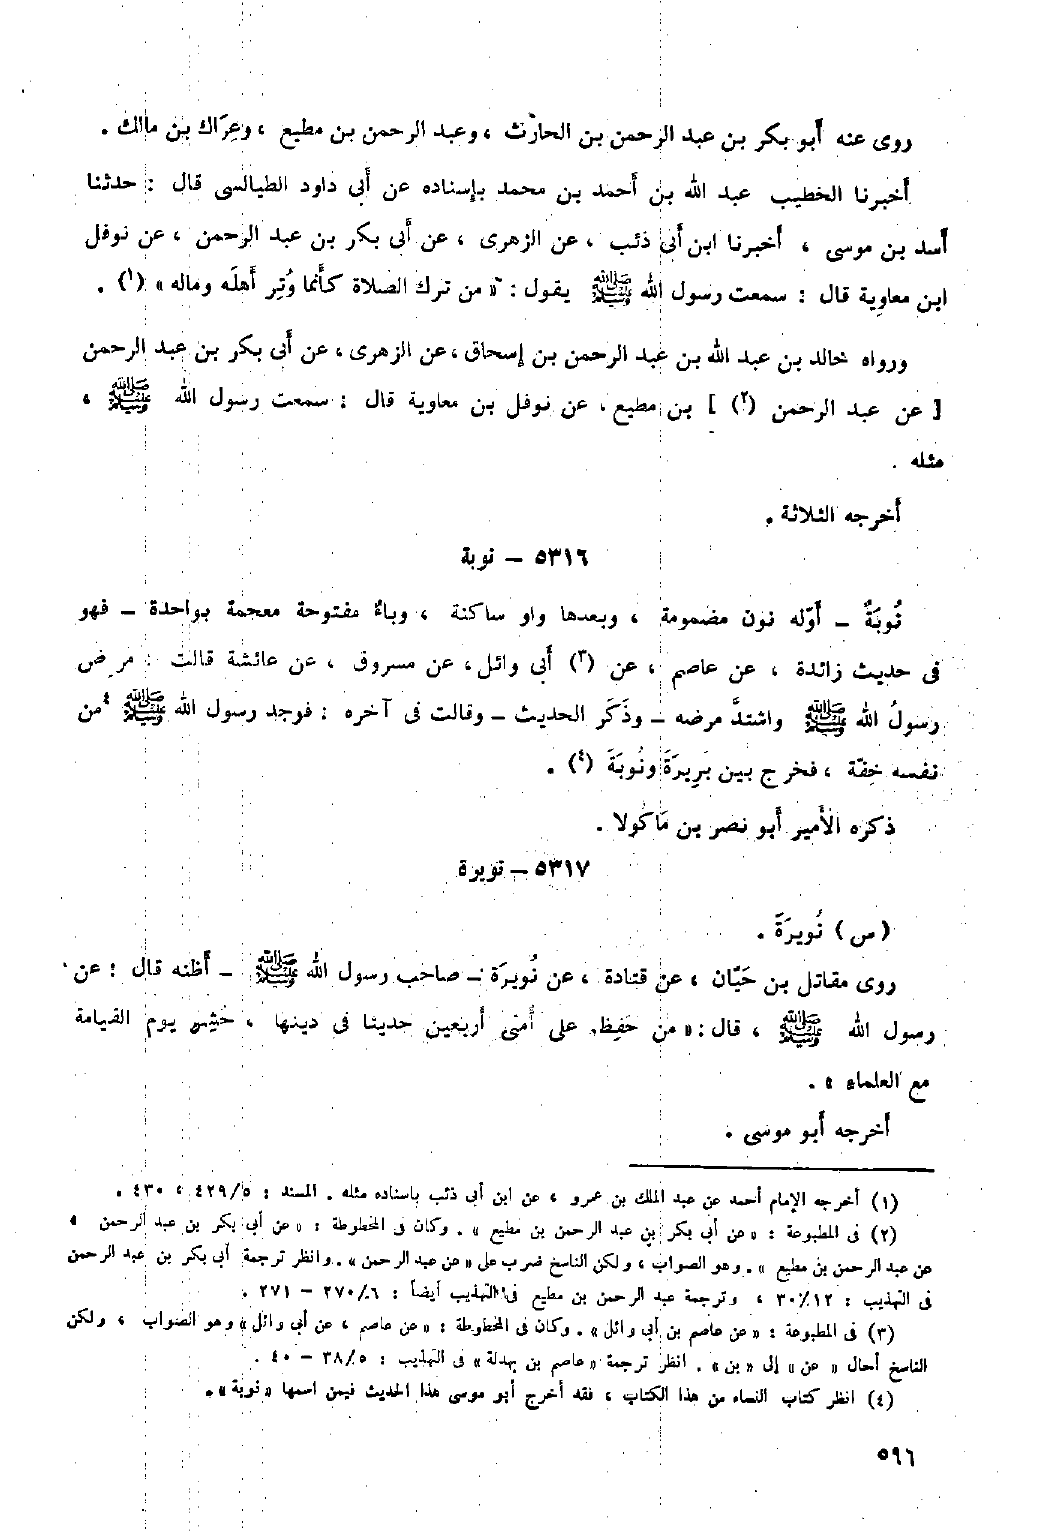 روى عنه أبو بكر بن عبد الرحمن بن الحارث ، وعبد الرحمن بن مطيع ، وعِرَاك بن مالك .
أخبرنا الخطيب عبد الله بن أحمد بن محمد بإسناده عن أبى داود الطيالسى قال : حدثنا
أسد بن موسى ، أخبرنا ابن أبى ذئب ، عن الزهرى ، عن أبى بكر بن عبد الرحمن ، عن نوفل
ابن معاوية قال : سمعت رسول الله ﷺ يقول : « من ترك الصلاة كأنما وُتِر أهلَه وماله » (١) .
ورواه خالد بن عبد الله بن عبد الرحمن بن إسحاق ، عن الزهرى ، عن أبى بكر بن عبد الرحمن
[ عن عبد الرحمن (٢) ] بن مطيع ، عن نوفل بن معاوية قال : سمعت رسول الله ﷺ ،
مثله .
أخرجه الثلاثة .
٥٣١٦ – نوبة
نُوبَةٌ – أوّله نون مضمومة ، وبعدها واو ساكنة ، وباءٌ مفتوحة معجمة بواحدة – فهو
فى حديث زائدة ، عن عاصم ، عن (٣) أبى وائل ، عن مسروق ، عن عائشة قالت : مرض
رسولُ الله ﷺ واشتدَّ مرضه – وذَكَر الحديث – وقالت فى آخره : فوجد رسول الله ﷺ من
نفسه خِفّة ، فخرج بين بَرِيرَةَ ونُوبَةَ (٤) .
ذكره الأمير أبو نصر بن مَاكُولا .
٥٣١٧ – نويرة
(س) نُويرَةَ .
روى مقاتل بن حَيّان ، عن قتادة ، عن نُويرَة – صاحب رسول الله ﷺ – أظنه قال : عن
رسول الله ﷺ ، قال : « من حَفِظ على أُمتى أربعين حديثا فى دينها ، حُشِر يوم القيامة
مع العلماء » .
أخرجه أبو موسى .
(١) أخرجه الإمام أحمد عن عبد الملك بن عمرو ، عن ابن أبى ذئب بإسناده مثله . المسند : ٤٢٩/٥ ، ٤٣٠ .
(٢) فى المطبوعة : « عن أبى بكر بن عبد الرحمن بن مطيع » . وكان فى المخطوطة : « عن أبى بكر بن عبد الرحمن ،
عن عبد الرحمن بن مطيع » . وهو الصواب ، ولكن الناسخ ضرب على « عن عبد الرحمن » . وانظر ترجمة أبى بكر بن عبد الرحمن
فى التهذيب : ٣٠/١٢ ، وترجمة عبد الرحمن بن مطيع فى التهذيب أيضاً : ٢٧٠/٦ – ٢٧١ .
(٣) فى المطبوعة : « عن عاصم بن أبى وائل » . وكان فى المخطوطة : « عن عاصم ، عن أبى وائل » وهو الصواب ، ولكن
الناسخ أحال « عن » إلى « بن » . انظر ترجمة « عاصم بن بهدلة » فى التهذيب : ٣٨/٥ – ٤٠ .
(٤) انظر كتاب النساء من هذا الكتاب ، فقد أخرج أبو موسى هذا الحديث فيمن اسمها « نوبة » .
٥٩٦